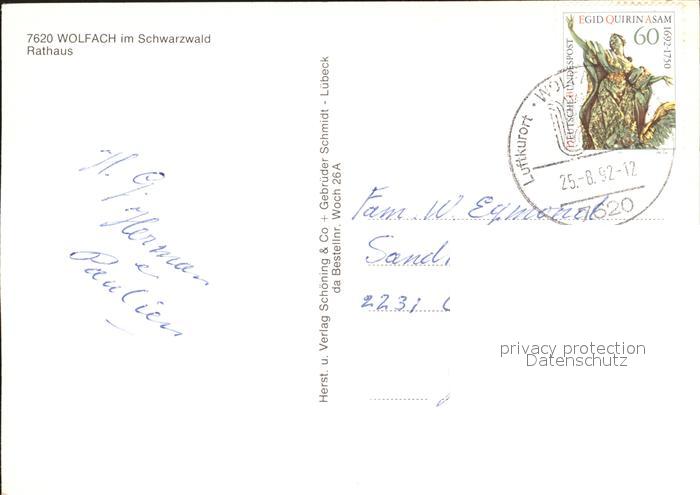 7620 WOLFACH im Schwarzwald
Rathaus
H. G.
Herman
e
Paulien
Herst. u. Verlag Schöning & Co + Gebrüder Schmidt - Lübeck
da Bestellnr. Woch 26A
EGID QUIRIN ASAM
60
1692-1750
DEUTSCHE BUNDESPOST
Luftkurort
25.-8.92-12
7620
Fam. W. Egmond
Sand
2231
privacy protection
Datenschutz